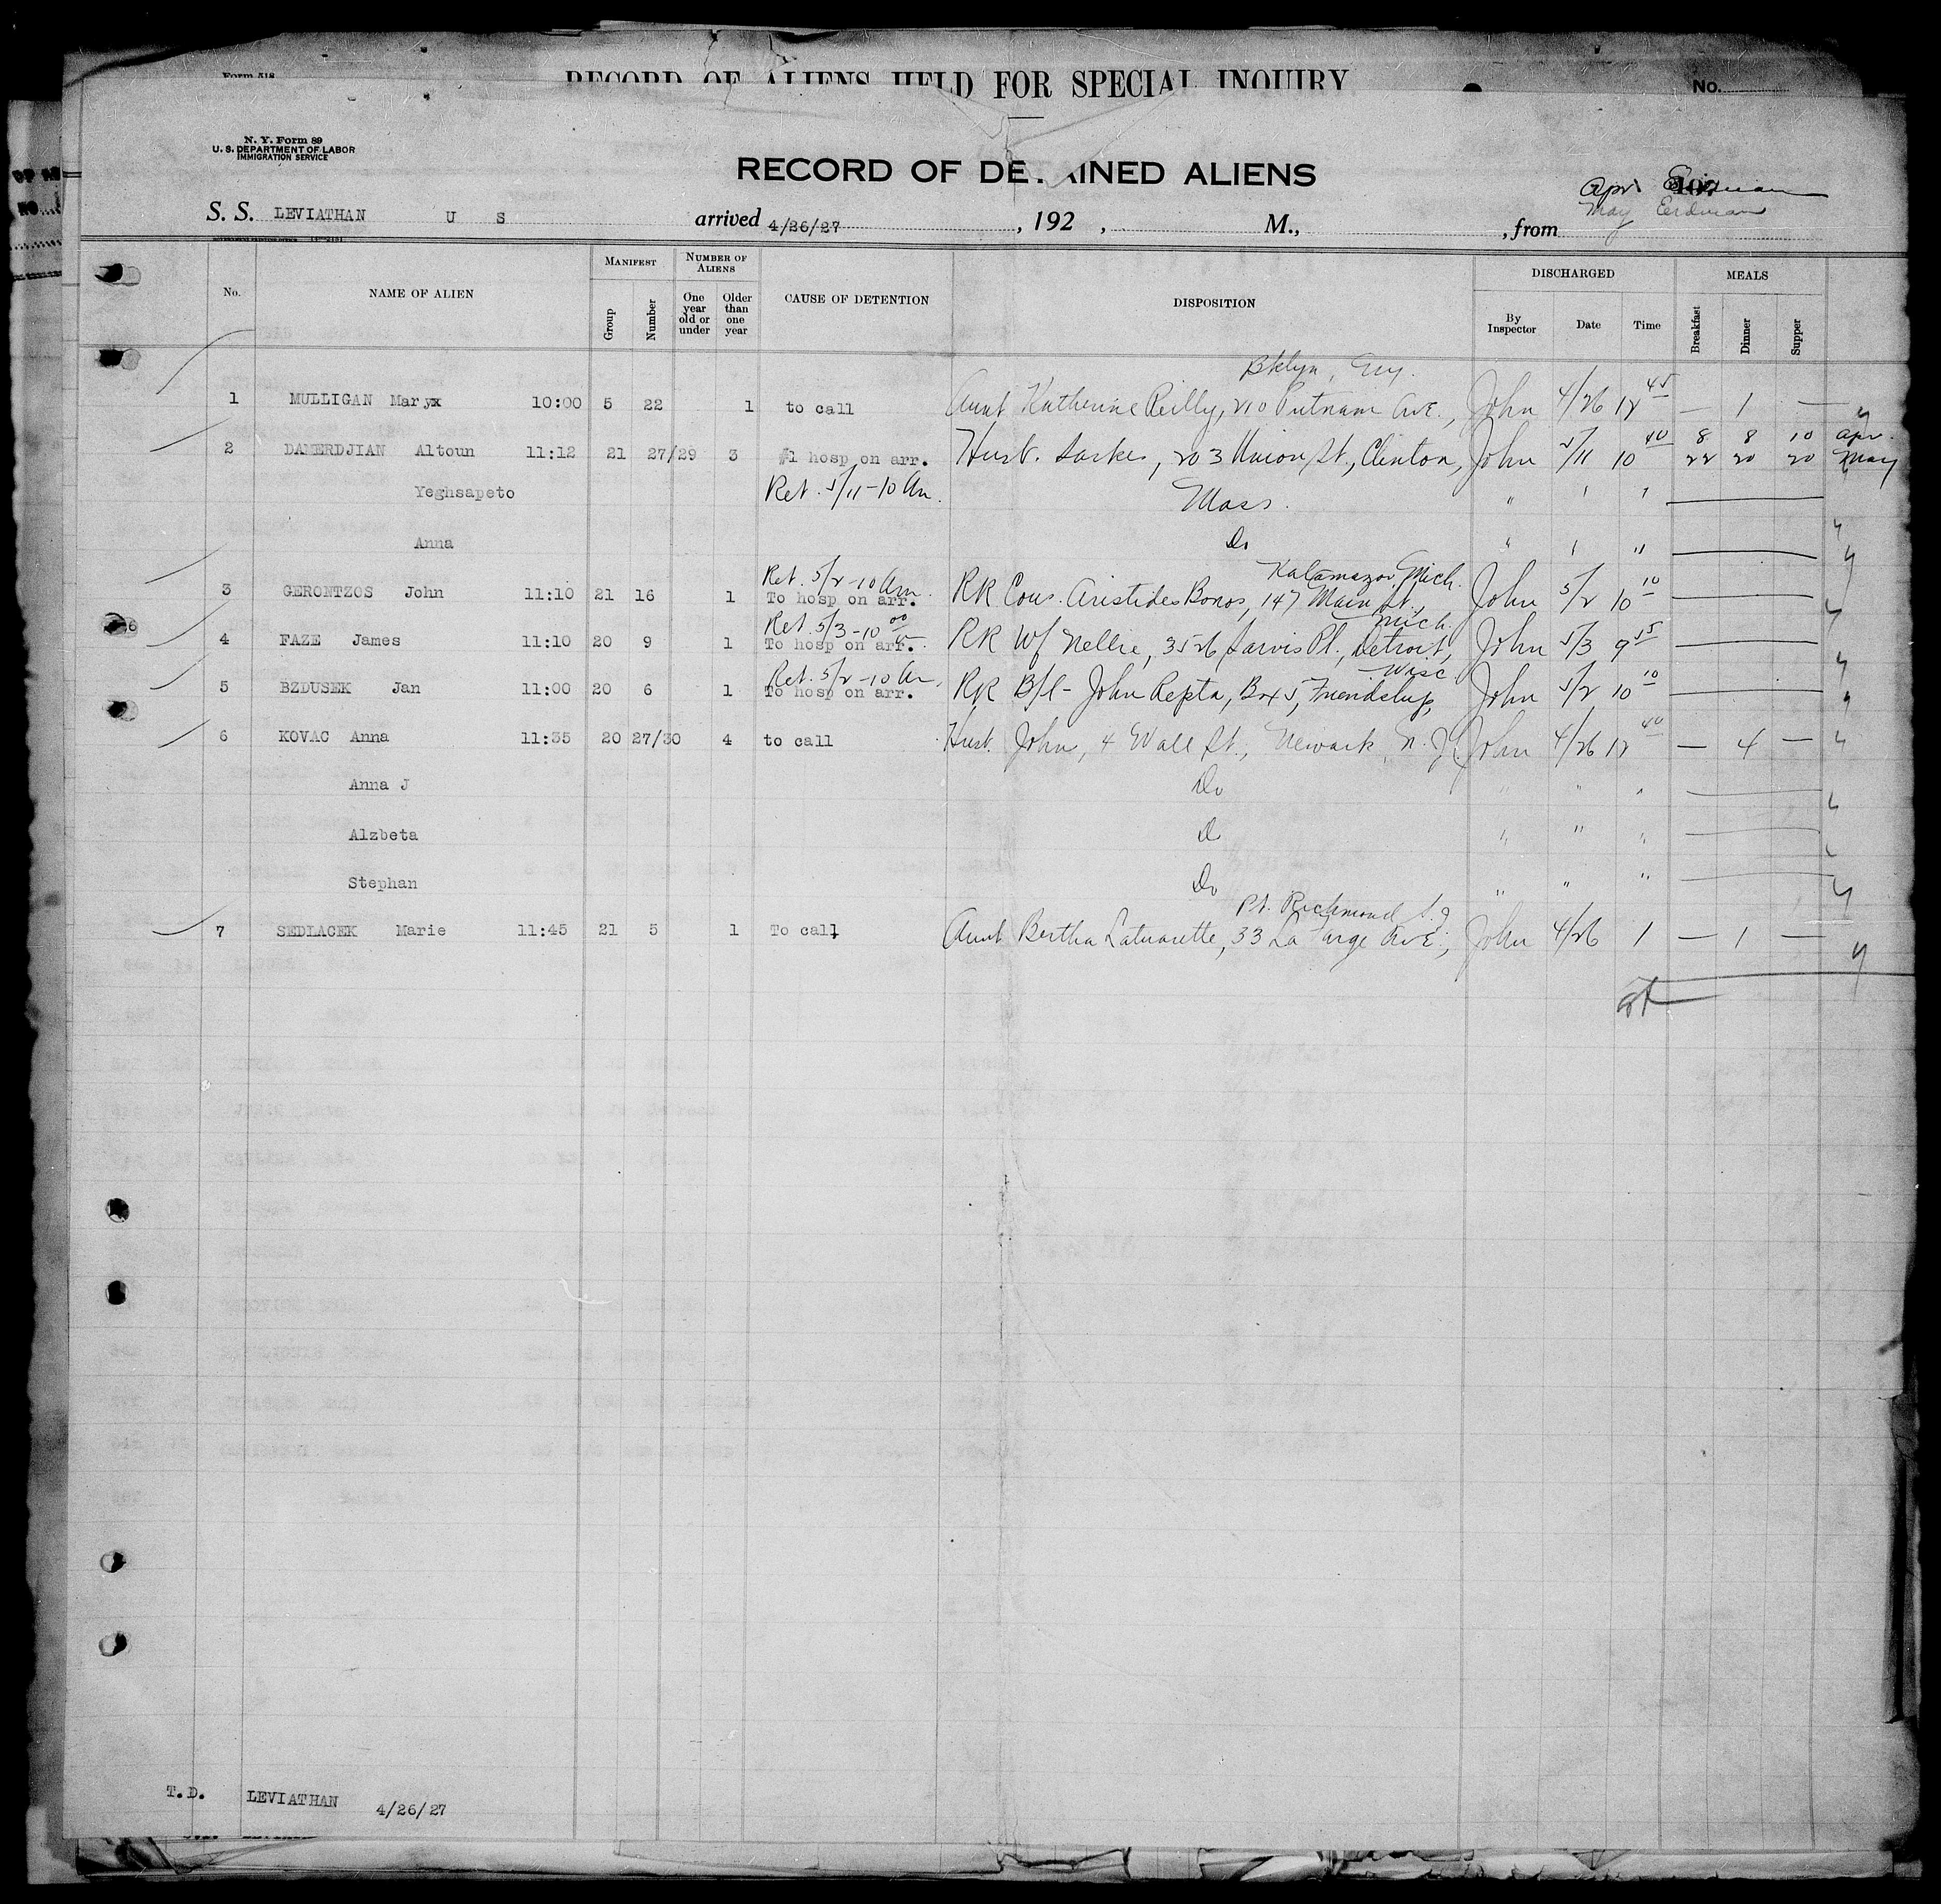 Form 518
RECORD OF ALIENS HELD FOR SPECIAL INQUIRY
No.
N. Y. Form 89
U. S. DEPARTMENT OF LABOR
IMMIGRATION SERVICE
RECORD OF DETAINED ALIENS
Apr Erdman
May Erdman
S. S. LEVIATHAN U S arrived 4/26/27, 192 , M., , from
No. NAME OF ALIEN MANIFEST Group Number NUMBER OF ALIENS One year old or under Older than one year CAUSE OF DETENTION DISPOSITION DISCHARGED By Inspector Date Time MEALS Breakfast Dinner Supper
Bklyn, Ny.
1 MULLIGAN Maryx 10:00 5 22 1 to call Aunt Katherine Reilly, 210 Putnam Ave., John 4/26 12 45 — 1 —
2 DAMERDJIAN Altoun 11:12 21 27/29 3 #1 hosp on arr. Husb. Sarkis, 203 Union St., Clinton, John 5/11 10 40 8 8 10 Apr.
22 20 20 May
Yeghsapeto Ret. 5/11-10 Am. Mass. " " "
Anna Do " " "
Ret. 5/2-10 Am. Kalamazoo, Mich.
3 GERONTZOS John 11:10 21 16 1 To hosp on arr. RR Cous. Aristides Bonos, 147 Main St., John 5/2 10 10
Ret. 5/3-10 00 Mich.
4 FAZE James 11:10 20 9 1 To hosp on arr. RR Wf Nellie, 3526 Jarvis Pl., Detroit, John 5/3 9 55
Ret. 5/2-10 Am. Wisc
5 BZDUSEK Jan 11:00 20 6 1 To hosp on arr. RR B/l - John Repta, Box 5, Friendship, John 5/2 10 10
6 KOVAC Anna 11:35 20 27/30 4 to call Husb. John, 4 Wall St., Newark, N. J. John 4/26 12 40 — 4 —
Anna J Do " " "
Alzbeta Do " " "
Stephan Do " " "
Pt. Richmond S.I
7 SEDLACEK Marie 11:45 21 5 1 To call Aunt Bertha Latourette, 33 La Farge Ave., John 4/26 1 — 1 —
T.D. LEVIATHAN 4/26/27